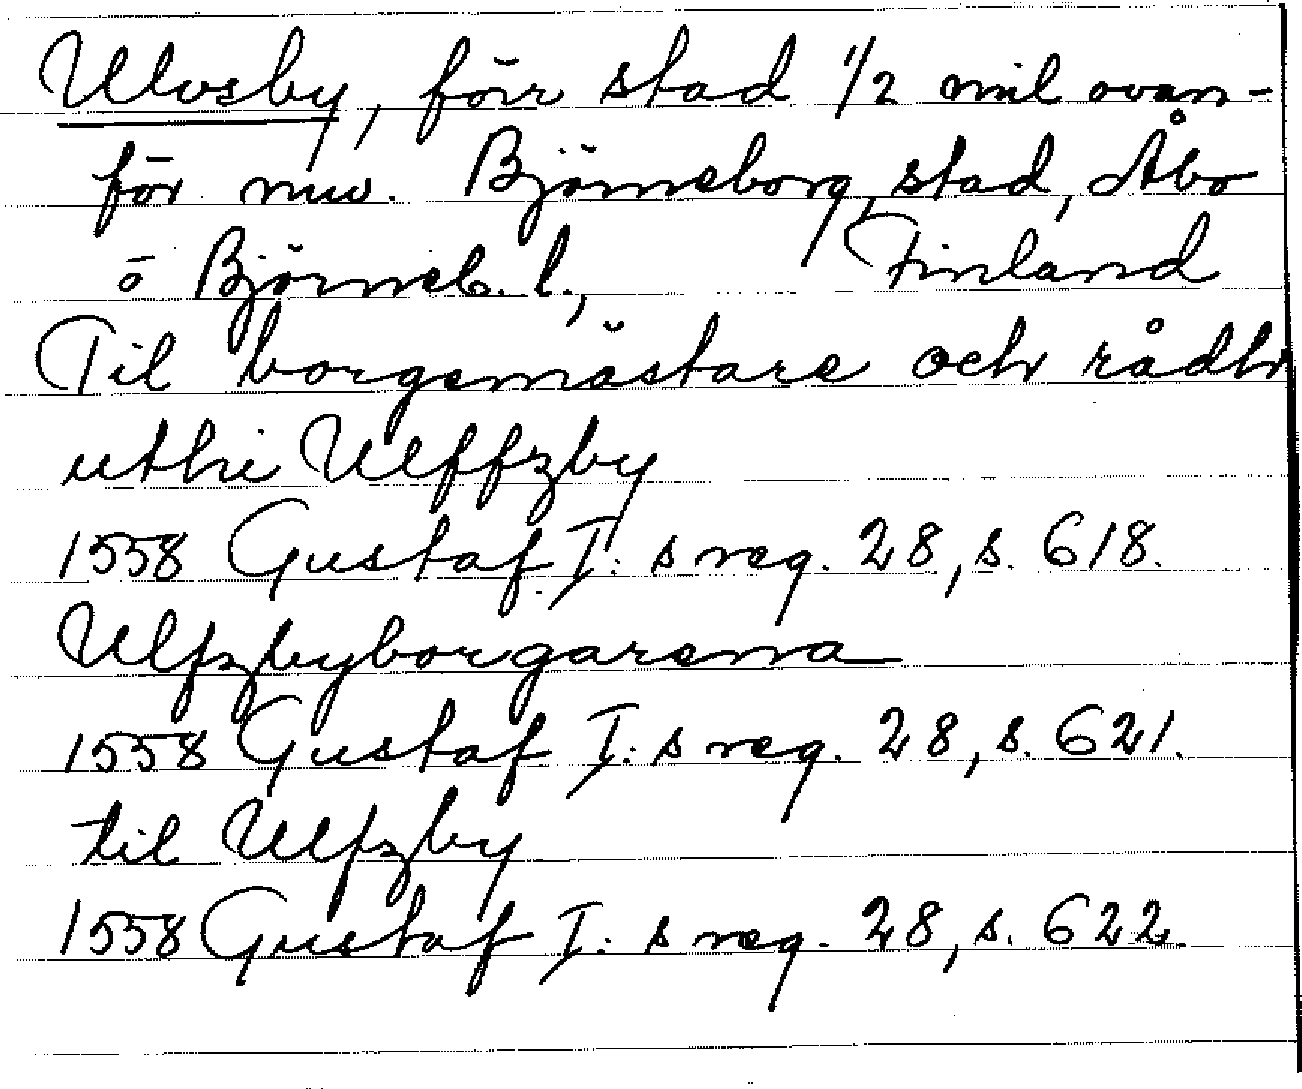 Ulvsby, förr stad 1/2 mil ovan-
för nuv. Björneborg, stad, Åbo
o Björneb. l., Finland
Til borgemästare och rådh
uthi Ulffzby
1558 Gustaf I:s reg. 28, s. 618.
Ulfzbyborgarena
1558 Gustaf I:s reg. 28, s. 621.
til Ulfzby
1558 Gustaf I:s reg. 28, s. 622.